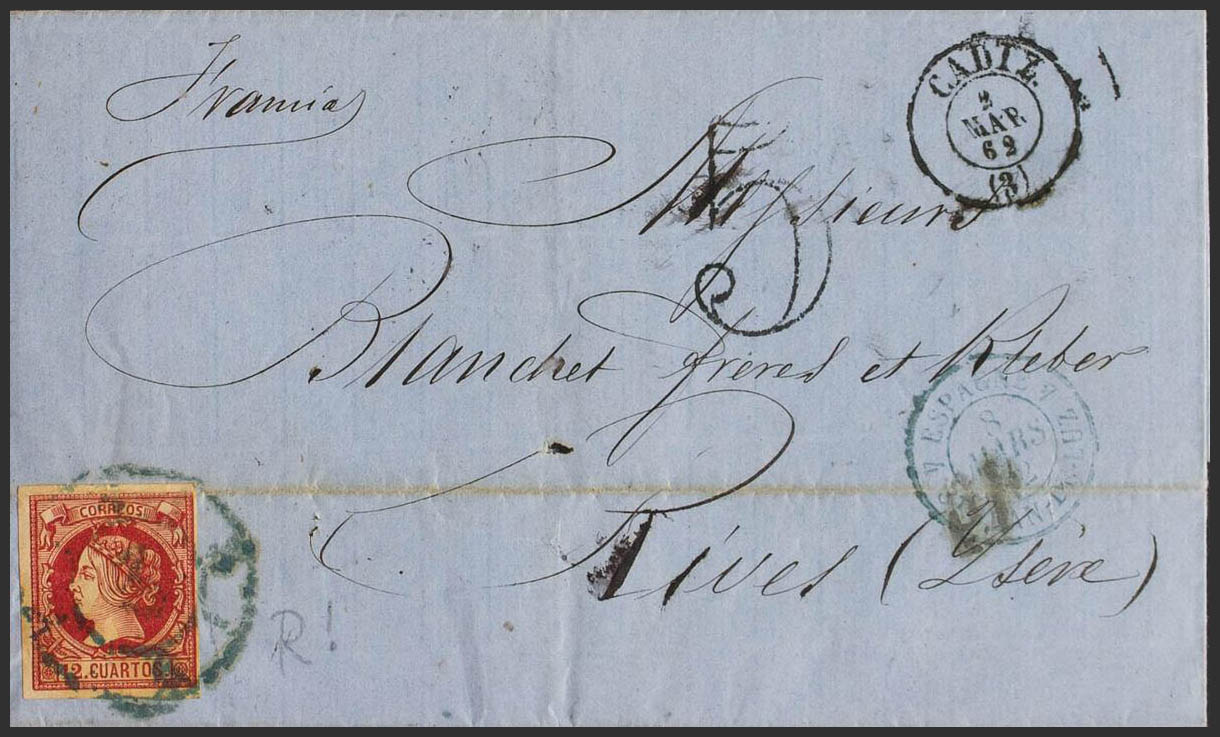 CADIZ
2
MAR
62
(3)
Francia
Messieurs
Blanchet frères et Kleber
ESPAGNE
8
MARS
Rives (Isère)
CORREOS
12.CUARTOS.
R!